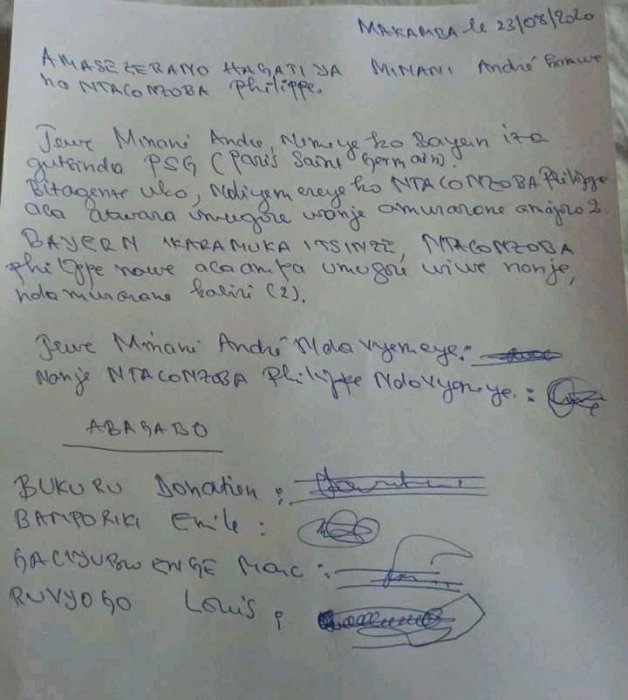 MAKAMBA le 23/08/2020
AMASEZERANO HAGATI YA MINANI André
na NTACONZOBA Philippe.
Jewe Minani André, Nemeye ko Bayern iza
gutsinda PSG (Paris Saint Germain).
Bitagenze uko, Ndiyemereye ko NTACONZOBA Philippe
aca atwara umugore wanje amurarane amajoro 2.
BAYERN IKARAMUKA ITSINZE, NTACONZOBA
Philippe nawe aca ampa umugore wiwe nanje,
nda murarane kabiri (2).
Jewe Minani André Nda vyemeye:
Nanje NTACONZOBA Philippe Ndavyemeye. :
ABAGABO
BUKURU Donatien :
BAMPORIKI Emile :
GACIYUBWENGE Marc :
RUVYOGO Louis :